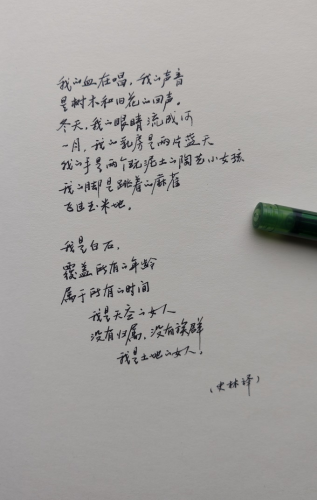 我的血在唱，我的声音
是树木和旧花的回声。
冬天，我的眼睛流成河
一月，我的乳房是两片蓝天
我的手是两个玩泥土的陶艺小女孩
我的脚是跳着的麻雀
飞过玉米地。
我是白石，
覆盖所有的年龄
属于所有的时间
我是天空的女人
没有归属，没有族群
我是土地的女人。
（史林译）